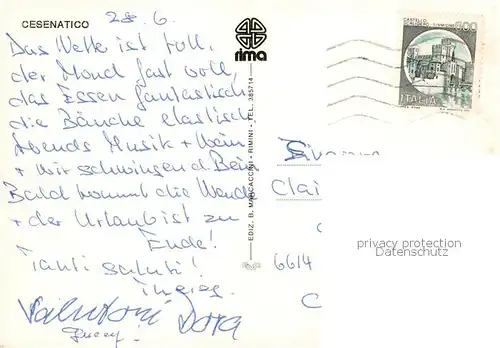 CESENATICO
28.6.
Das Wetter ist toll,
der Mond fast voll,
das Essen fantastisch
die Bäuche elastisch
Abends Musik + Wein
+ wir schwingen d. Bein
Bald kommt die Wende
+ der Urlaub ist zu
Ende!
Tanti saluti!
rima
EDIZ. B. MARCACCINI - RIMINI - TEL. 385714
500
ITALIA
Clai
6614
C
privacy protection
Datenschutz